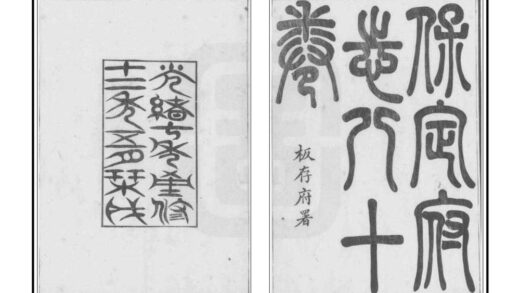 保定府
志八十
卷
板存府署
光緒七年重修
十二年五月栞成